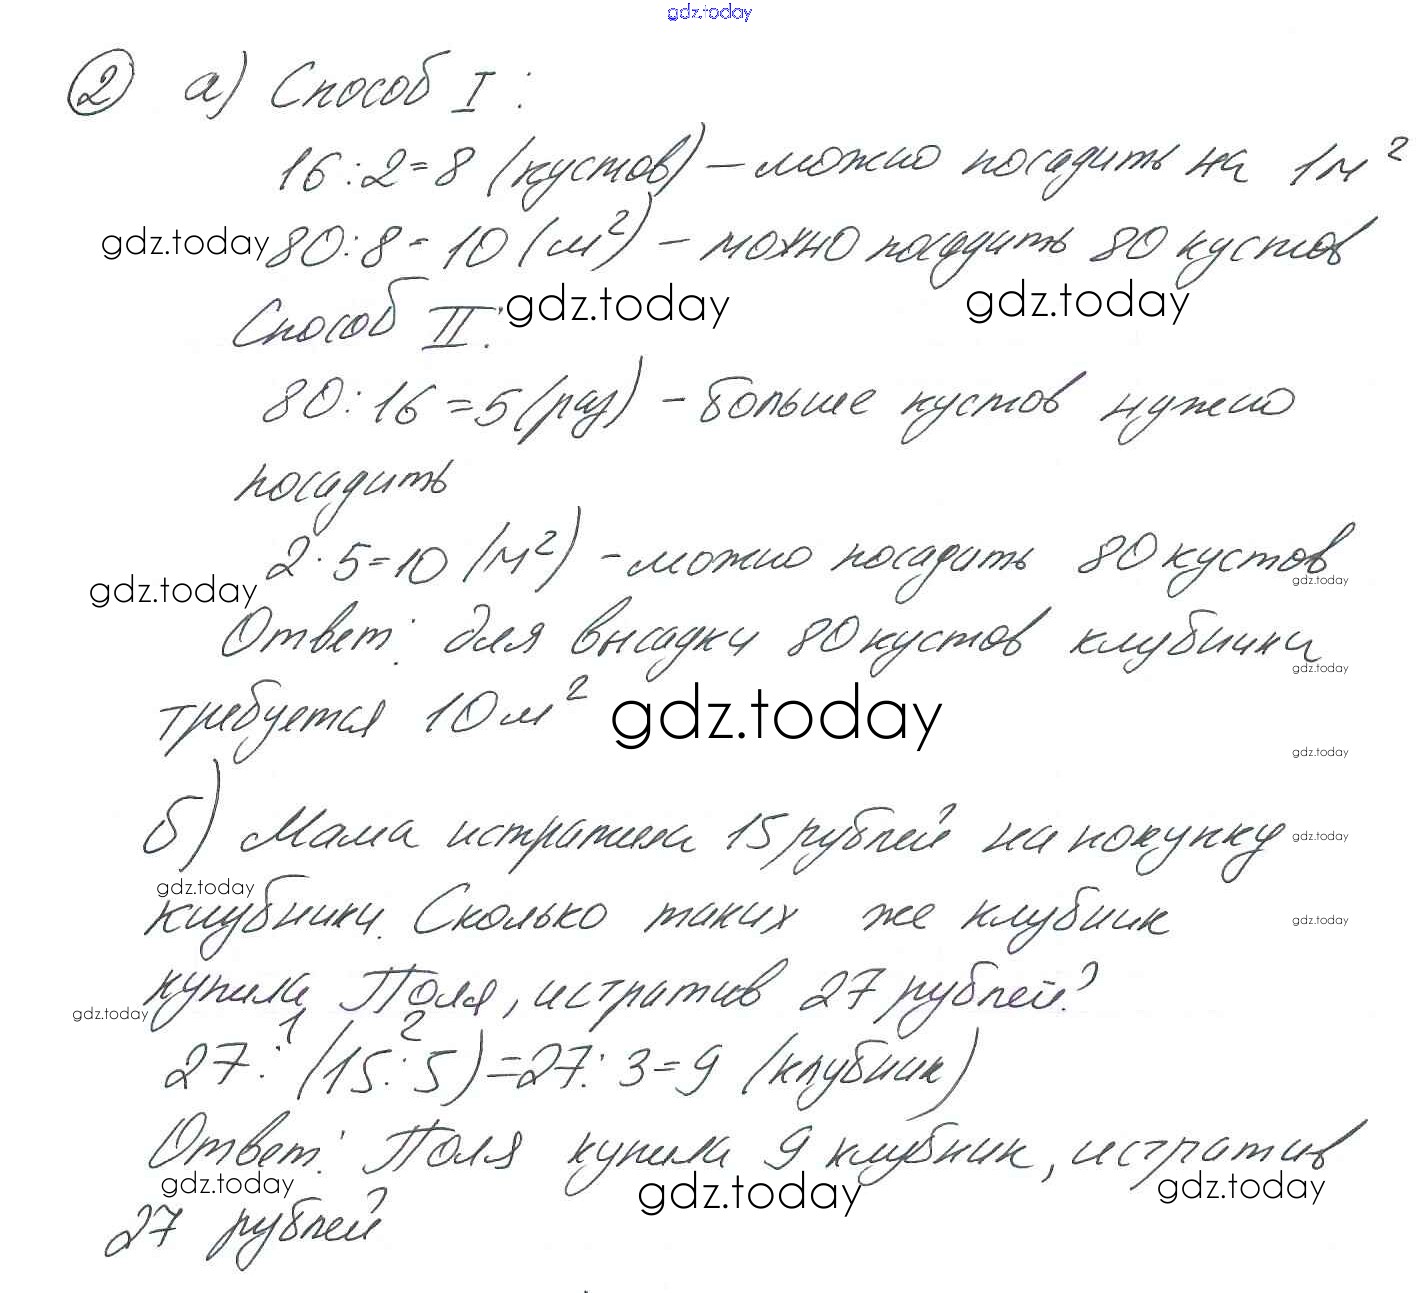 gdz.today
② а) Способ I :
16 : 2 = 8 (кустов) – можно посадить на 1м²
gdz.today 80 : 8 = 10 (м²) – можно посадить 80 кустов
Способ II: gdz.today gdz.today
80 : 16 = 5 (раз) – больше кустов нужно
посадить
2 · 5 = 10 (м²) – можно посадить 80 кустов
gdz.today gdz.today
Ответ: для высадки 80 кустов клубники
gdz.today
требуется 10 м² gdz.today
gdz.today
б) Мама истратила 15 рублей на покупку gdz.today
gdz.today
клубники. Сколько таких же клубник gdz.today
купила Поля, истратив 27 рублей?
gdz.today
1 2
27 : (15 : 5) = 27 : 3 = 9 (клубник)
Ответ: Поля купила 9 клубник, истратив
gdz.today gdz.today gdz.today
27 рублей